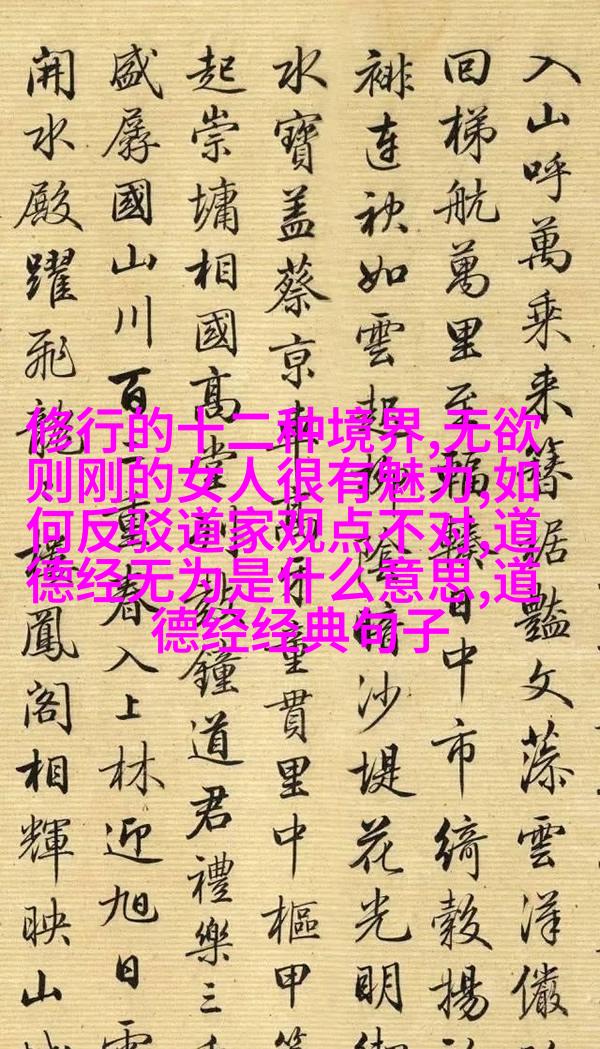 入山呼萬乘來簪裾豔文藻雲漢儼
回梯航萬里至輻輳日中市綺縠揚
連袂如雲起柳陰沙堤花光明
水寶蓋蔡京車童貫里中樞甲
起崇墉相國高堂鐘道君禮樂三
盛孱國山川百二重春入上林迎旭日
開水殿躍飛龍鳳閣相輝映山
修行的十二种境界,无欲
则刚的女人很有魅力,如
何反驳道家观点不对,道
德经无为是什么意思,道
德经经典句子